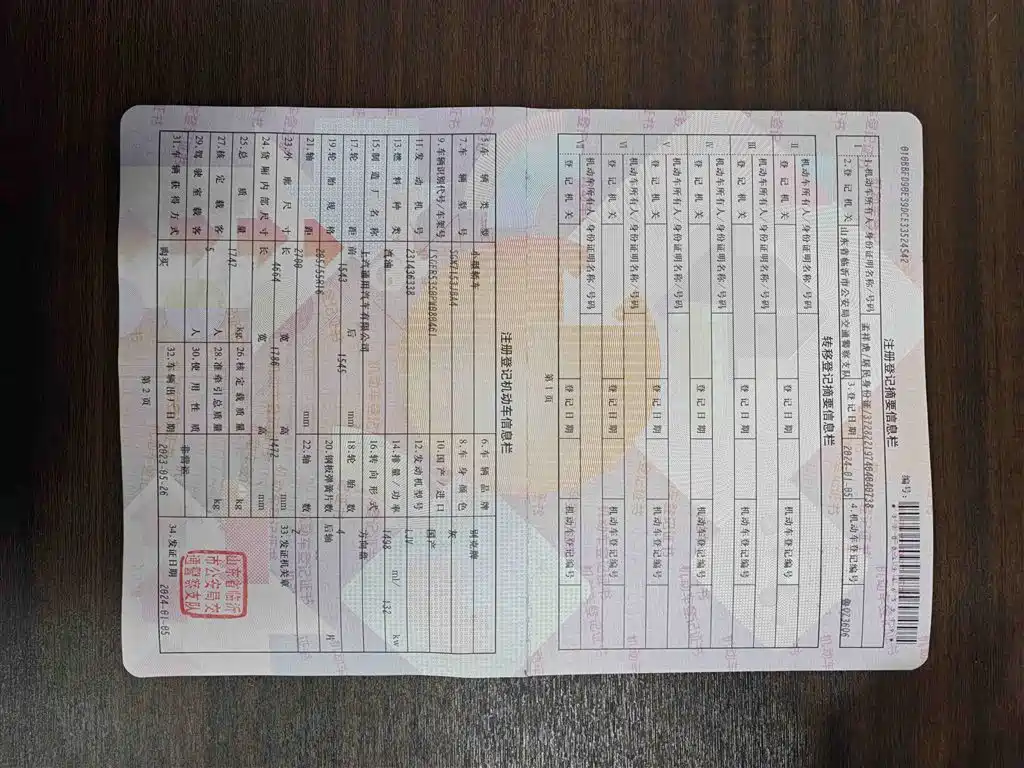 注册登记摘要信息栏
编号:
1.机动车所有人/身份证明名称/号码 孟祥虎/居民身份证/
2.登记机关 山东省临沂市公安局交通警察支队 3.登记日期 2024-01-05 4.机动车登记编号
转移登记摘要信息栏
II 机动车所有人/身份证明名称/号码
登记机关 登记日期 机动车登记编号
III 机动车所有人/身份证明名称/号码
登记机关 登记日期 机动车登记编号
IV 机动车所有人/身份证明名称/号码
登记机关 登记日期 机动车登记编号
V 机动车所有人/身份证明名称/号码
登记机关 登记日期 机动车登记编号
VI 机动车所有人/身份证明名称/号码
登记机关 登记日期 机动车登记编号
VII 机动车所有人/身份证明名称/号码
登记机关 登记日期 机动车登记编号
第 1 页
注册登记机动车信息栏
5.车辆类型 小型轿车 6.车辆品牌 别克牌
7.车辆型号 8.车身颜色 灰
9.车辆识别代号/车架号 10.国产/进口 国产
11.发动机号 231436338 12.发动机型号 LIV
13.燃料种类 汽油 14.排量/功率 1498 ml/ 132 kw
15.制造厂名称 上汽通用汽车有限公司 16.转向形式 方向盘
17.轮距 前 1543 后 1545 mm 18.轮胎数 4
19.轮胎规格 205/55R16 20.钢板弹簧片数 后轴 片
21.轴距 2700 mm 22.轴数 2
23.外廓尺寸 长 4664 宽 1786 高 1472 mm 33.发证机关章
24.货厢内部尺寸 长 宽 高 mm
25.总质量 1747 kg 26.核定载质量 kg
27.核定载客 5 人 28.准牵引总质量 kg
29.驾驶室载客 人 30.使用性质 非营运
31.车辆获得方式 购买 32.车辆出厂日期 2023-05-26 34.发证日期 2024-01-05
山东省临沂
市公安局交
通警察支队
第 2 页